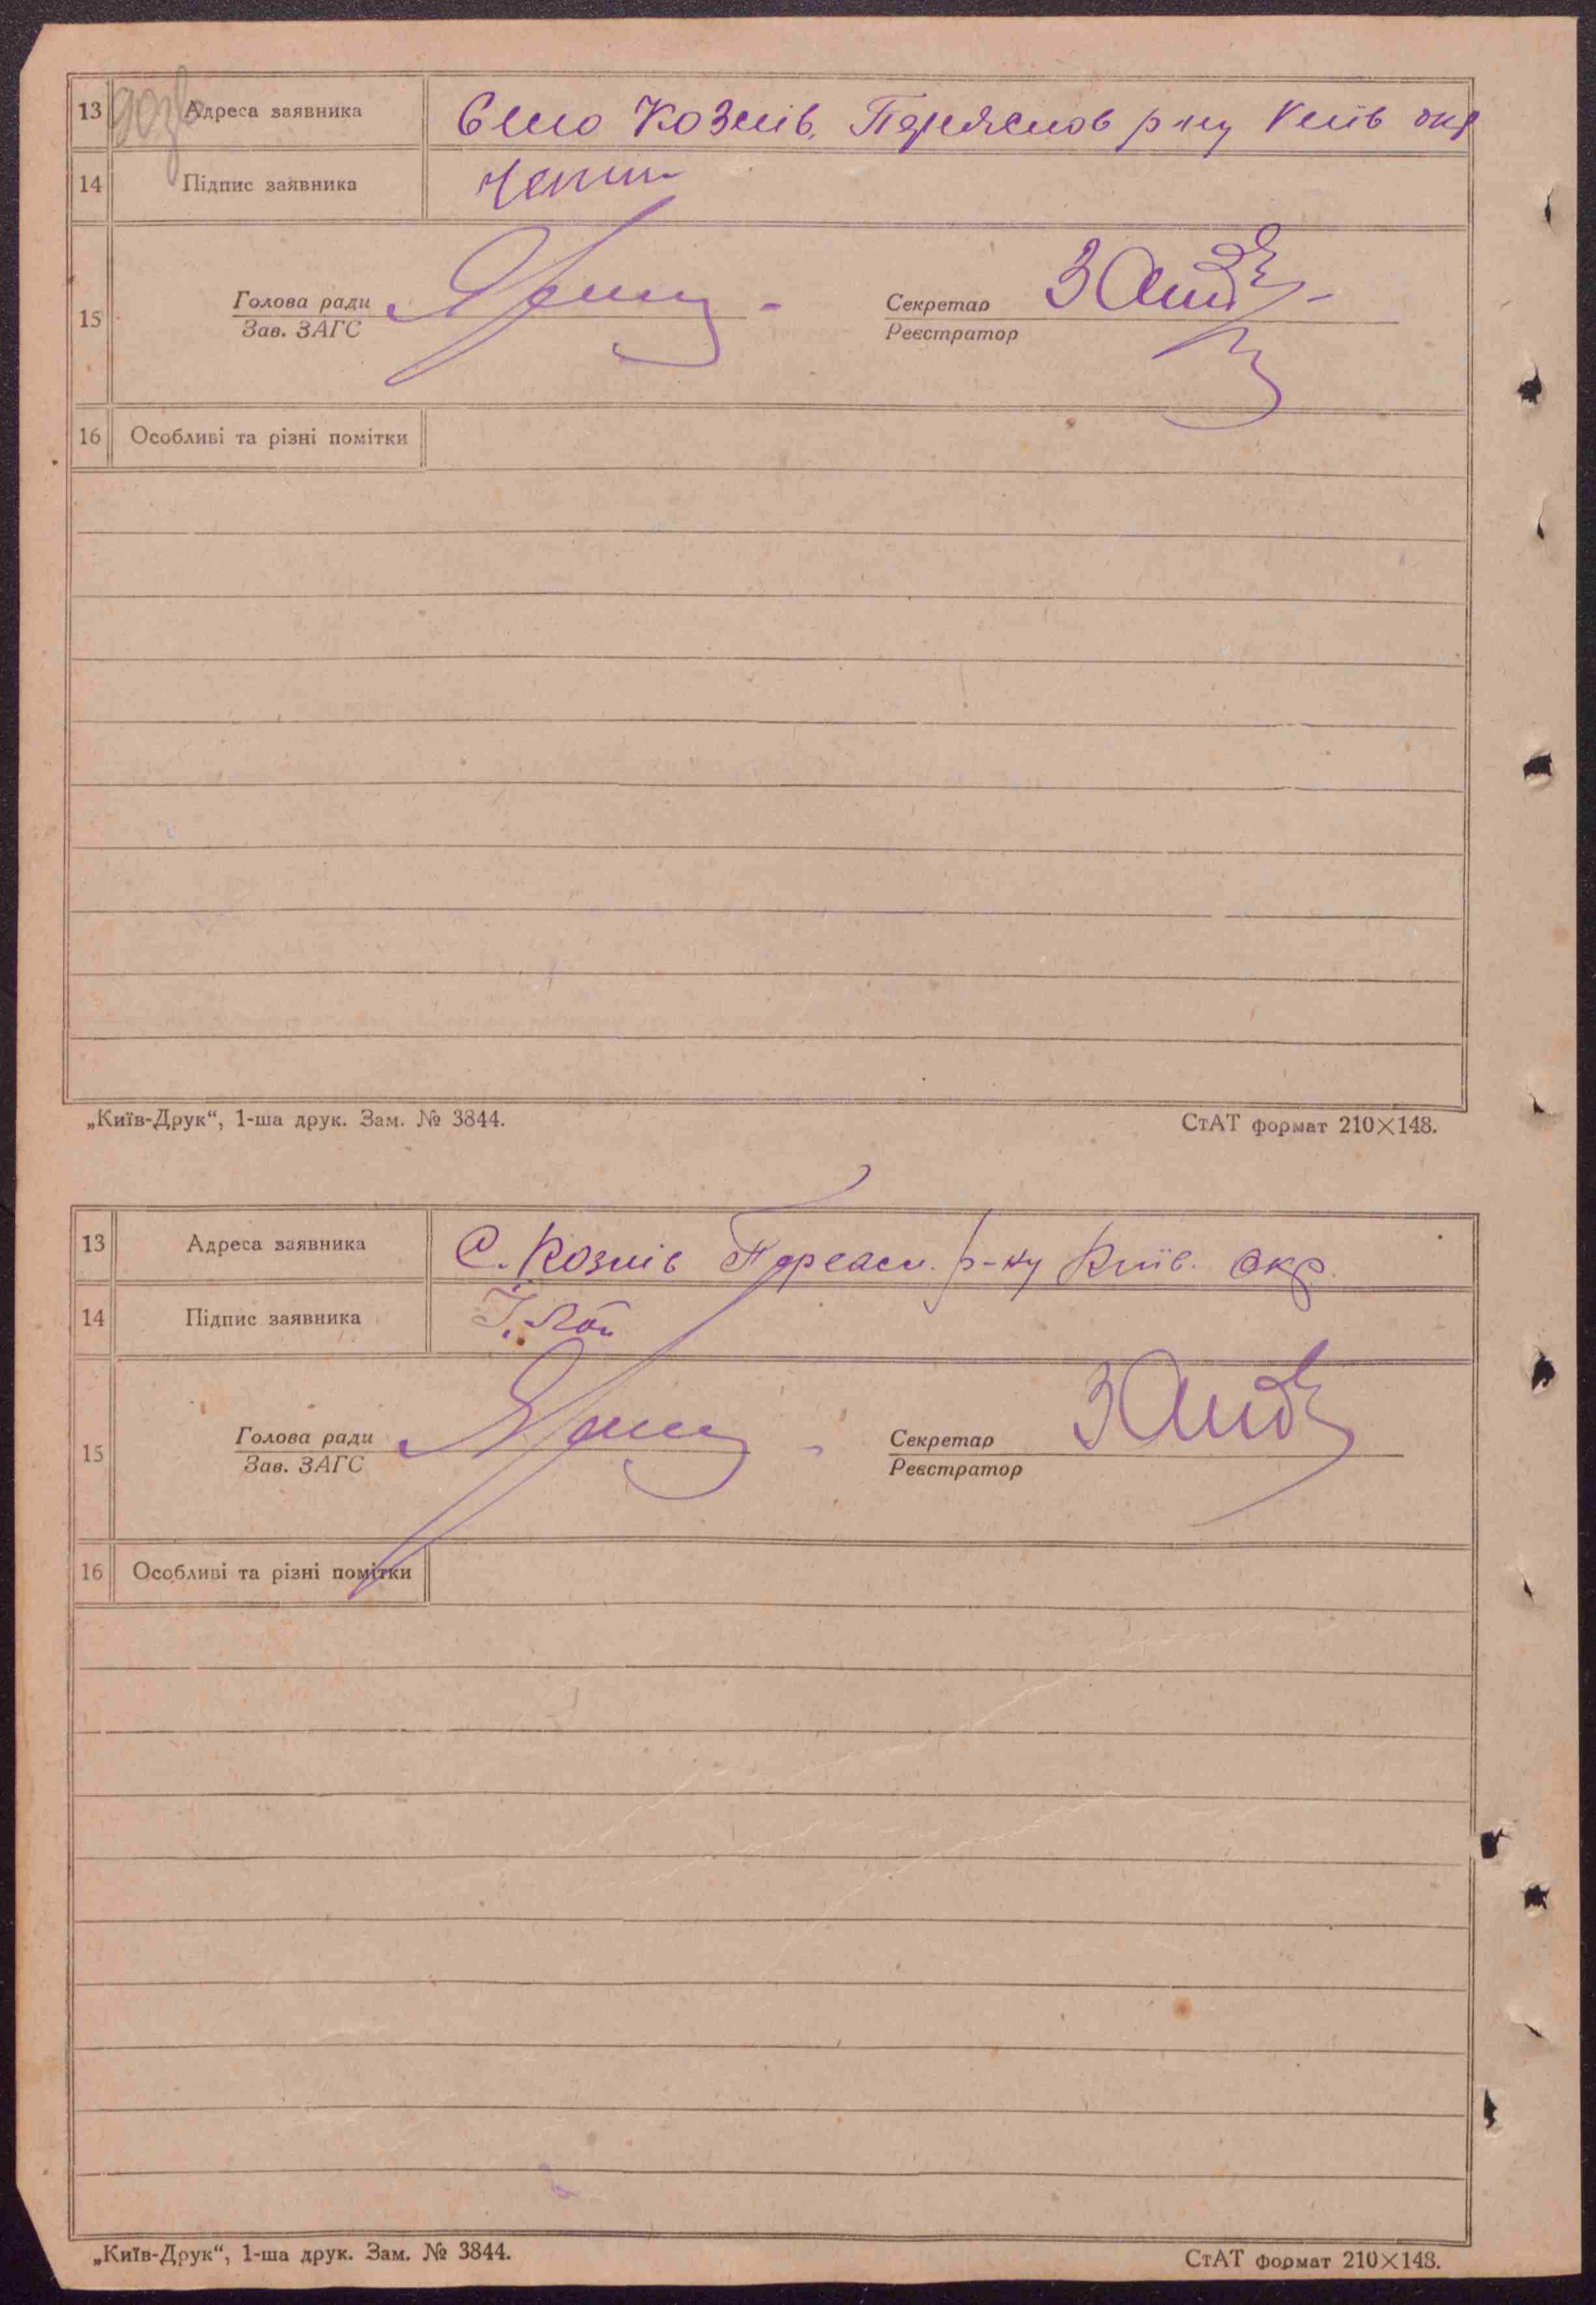 13 Адреса заявника Село Козлів, Переяслов р-ну Київ окр
14 Підпис заявника
15 Голова ради Секретар
Зав. ЗАГС Реєстратор
16 Особливі та різні помітки
„Київ-Друк“, 1-ша друк. Зам. № 3844. СтАТ формат 210×148.
13 Адреса заявника С. Козлів Переясл. р-ну Київ. окр.
14 Підпис заявника
15 Голова ради Секретар
Зав. ЗАГС Реєстратор
16 Особливі та різні помітки
„Київ-Друк“, 1-ша друк. Зам. № 3844. СтАТ формат 210×148.